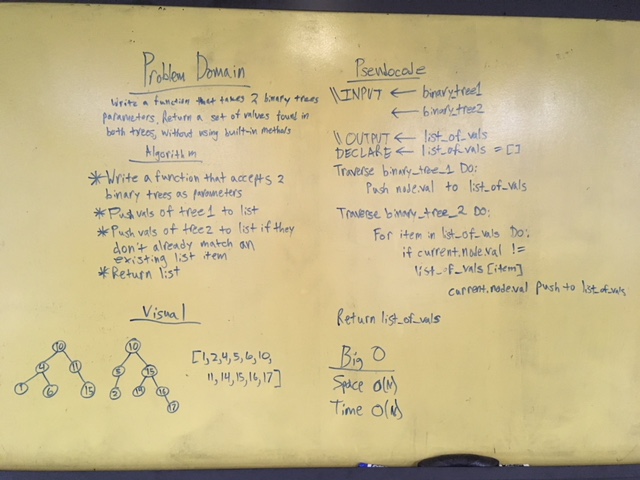 Problem Domain
Write a function that takes 2 binary trees
parameters. Return a set of values found in
both trees, without using built-in methods
Algorithm
* Write a function that accepts 2
binary trees as parameters
* Push vals of tree1 to list
* Push vals of tree2 to list if they
don't already match an
existing list item
* Return list
Visual
10
4 11
1 6 15
10
5 15
2 14 16
17
[1,2,4,5,6,10,
11,14,15,16,17]
Pseudocode
\\INPUT ← binary_tree1
← binary_tree2
\\OUTPUT ← list_of_vals
DECLARE ← list_of_vals = []
Traverse binary_tree_1 Do:
Push node.val to list_of_vals
Traverse binary_tree_2 Do:
For item in list_of_vals Do:
if current.node.val !=
list_of_vals[item]
current.node.val push to list_of_vals
Return list_of_vals
Big O
Space O(N)
Time O(N)